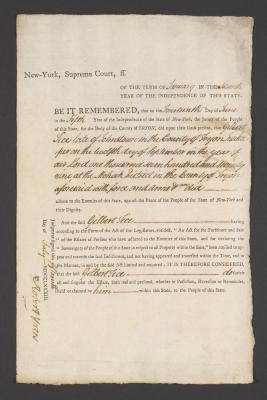 New-York, Supreme Court, ss.
OF THE TERM of January IN THE
YEAR OF THE INDEPENDENCE OF THIS STATE.
BE IT REMEMBERED, that on the fourteenth Day of June
in the Fifth Year of the Independence of the State of New-York, the Jurors of the People
of this State, for the Body of the County of TRYON, did upon their Oath present, that Gilbert
Tice late of Johnstown in the County of Tryon
on the twelfth day of September in the year of
our Lord one thousand seven hundred and seventy
nine at the Mohawk District in the County of Tryon
aforesaid with force and arms &c did
adhere to the Enemies of this State, against the Peace of the People of the State of New-York and
their Dignity.
And the said Gilbert Tice having
according to the Form of the Act of the Legislature, entitled, "An Act for the Forfeiture and Sale
"of the Estates of Persons who have adhered to the Enemies of this State, and for declaring the
"Sovereignty of the People of this State in respect to all Property within the same," been notified to ap-
pear and traverse the said Indictment, and not having appeared and traversed within the Time, and in
the Manner, in and by the said Act limited and required; IT IS THEREFORE CONSIDERED,
that the said Gilbert Tice do forfeit
all and singular the Estate, both real and personal, whether in Possession, Reversion or Remainder,
held or claimed by him within this State, to the People of this State.
Judgment signed this fifteenth
Day of July MDCCLXXXIII.
Robert Yates